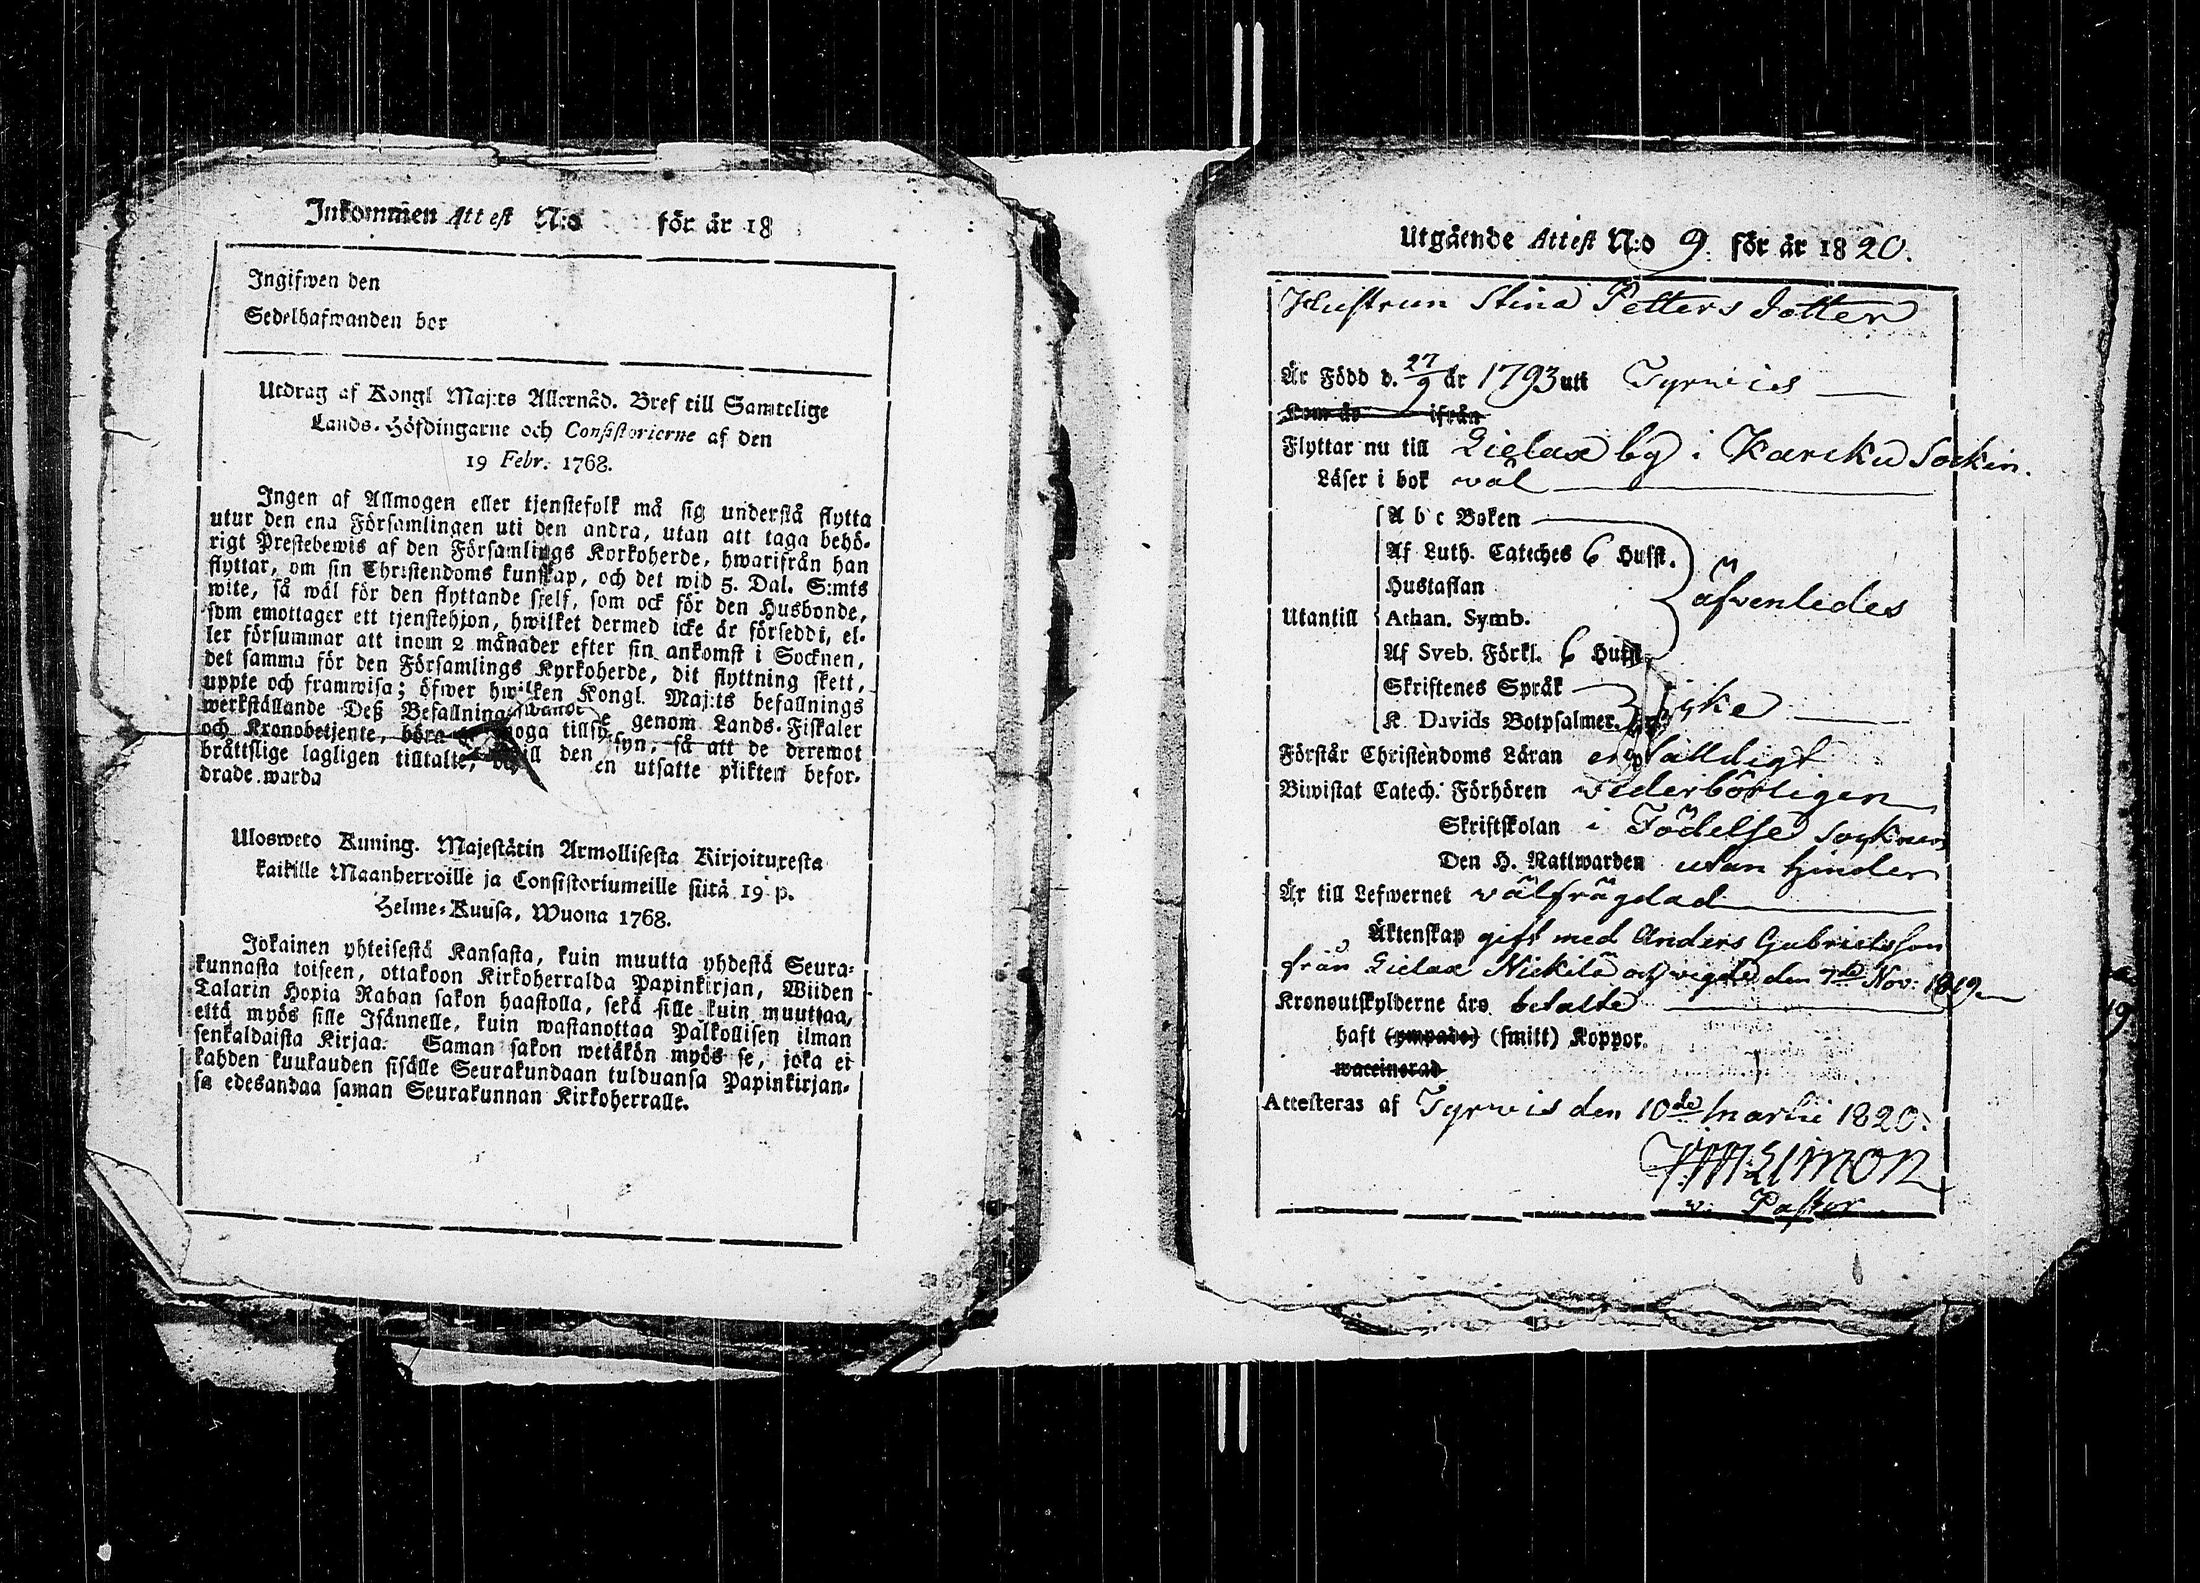 Inkommen Attest N:o för år 18
Ingifwen den
Sedelhafwanden bor
Utdrag af Kongl Maj:ts Allernåd. Bref till Samtelige
Lands-Höfdingarne och Consistorierne af den
19 Febr. 1768.
Ingen af Allmogen eller tjenstefolk må sig understå flytta
utur den ena Församlingen uti den andra, utan att taga behö-
rigt Prestebewis af den Församlings Kyrkoherde, hwarifrån han
flyttar, om sin Christendoms kunskap, och det wid 5. Dal. S:mts
wite, så wäl för den flyttande sjelf, som ock för den Husbonde,
som emottager ett tjenstehjon, hwilket dermed icke är försedd, el-
ler försummar att inom 2 månader efter sin ankomst i Socknen,
det samma för den Församlings Kyrkoherde, dit flyttning skett,
uppte och framwisa; öfwer hwilken Kongl. Maj:ts befallnings
werkställande Deß Befallning genom Lands-Fiskaler
och Kronobetjente, böra noga tillse syn, så att de deremot
bråttslige lagligen tilltalte, till den en utsatte plikten befor-
drade warda
Ulosweto Kuning. Majestätin Armollisesta Kirjoituxesta
kaikille Maanherroille ja Consistoriumeille siitä 19 p.
Helme-Kuusa, Wuona 1768.
Jokainen yhteisestä Kansasta, kuin muutta yhdestä Seura-
kunnasta toiseen, ottakoon Kirkoherralda Papinkirjan, Wiiden
Talarin Hopia Rahan sakon haastolla, sekä sille kuin muuttaa,
että myös sille Isännelle, kuin wastanottaa Palkollisen ilman
senkaldaista Kirjaa. Saman sakon wetäkön myös se, joka ei
kahden kuukauden sisälle Seurakundaan tulduansa Papinkirjan-
sa edesandaa saman Seurakunnan Kirkoherralle.
Utgående Attest N:o 9. för år 1820.
Hustrun Stina Petters dotter
Är Född d. 27/9 år 1793 uti Tyrwis
Kom år ifrån
Flyttar nu till Lielax by i Karcku Sockin.
Läser i bok wäl
A b c Boken
Af Luth. Cateches 6 Hufst.
Hustaflan
äfwenledes
Utantill Athan. Symb.
Af Sveb. Förkl. 6 Hufst.
Skriftenes Språk
K. Davids Botpsalmer. icke
Förstår Christendoms Läran enfalldigt
Biwistat Catech. Förhören wederbörligen
Skriftskolan i Födelse Socknen
Den H. Nattwarden utan hinder
Är till Lefwernet wälfrägdad
Äktenskap gift med Anders Gabrielsson
från Lielax Nickilä och wigde den 7de Nov: 1819
Kronoutskylderne äro betalte
haft (ympade) (smitt) Koppor.
waccinerad
Attesteras af Tyrwis den 10de Martii 1820.
v. Pastor